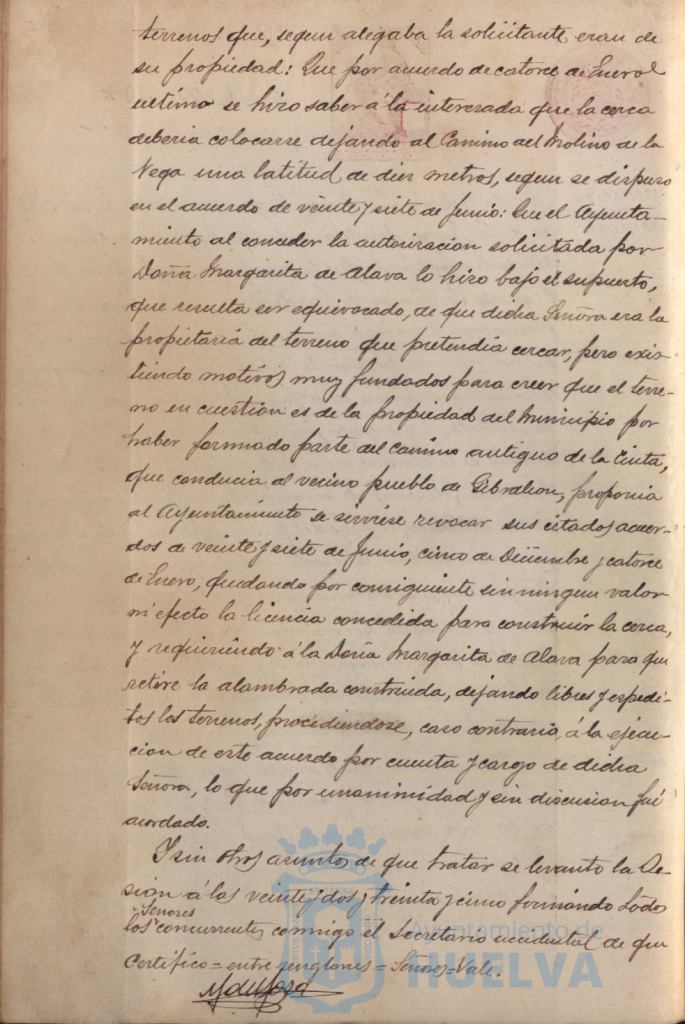 terrenos que, segun alegaba la solicitante, eran de
su propiedad: Que por acuerdo de catorce de Enero
ultimo se hizo saber á la interesada que la cerca
deberia colocarse dejando al Camino del Molino de la
Vega una latitud de diez metros, segun se dispuso
en el acuerdo de veinte y siete de Junio: Que el Ayunta-
miento al conceder la autorizacion solicitada por
Doña Margarita de Alava lo hizo bajo el supuesto,
que resulta ser equivocado, de que dicha Señora era la
propietaria del terreno que pretendia cercar, pero exis-
tiendo motivos muy fundados para creer que el terre-
no en cuestion es de la propiedad del Municipio por
haber formado parte del camino antiguo de la Cinta,
que conducia al vecino pueblo de Gibraleon, proponia
al Ayuntamiento se sirviese revocar sus citados acuer-
dos de veinte y siete de Junio, cinco de Diciembre y catorce
de Enero, quedando por consiguiente sin ningun valor
ni efecto la licencia concedida para construir la cerca,
y requiriendo á la Doña Margarita de Alava para que
retire la alambrada construida, dejando libres y espedi-
tos los terrenos, procediendose, caso contrario, á la ejecu-
cion de este acuerdo por cuenta y cargo de dicha
Señora, lo que por unanimidad y sin discusion fué
acordado.
Y sin otros asuntos de que tratar se levanto la Se-
sion á las veinte y dos y treinta y cinco firmando todos
Señores
los concurrentes conmigo el Secretario accidental de que
Certifico = entre renglones = Señores = Vale.
Ayuntamiento de
HUELVA